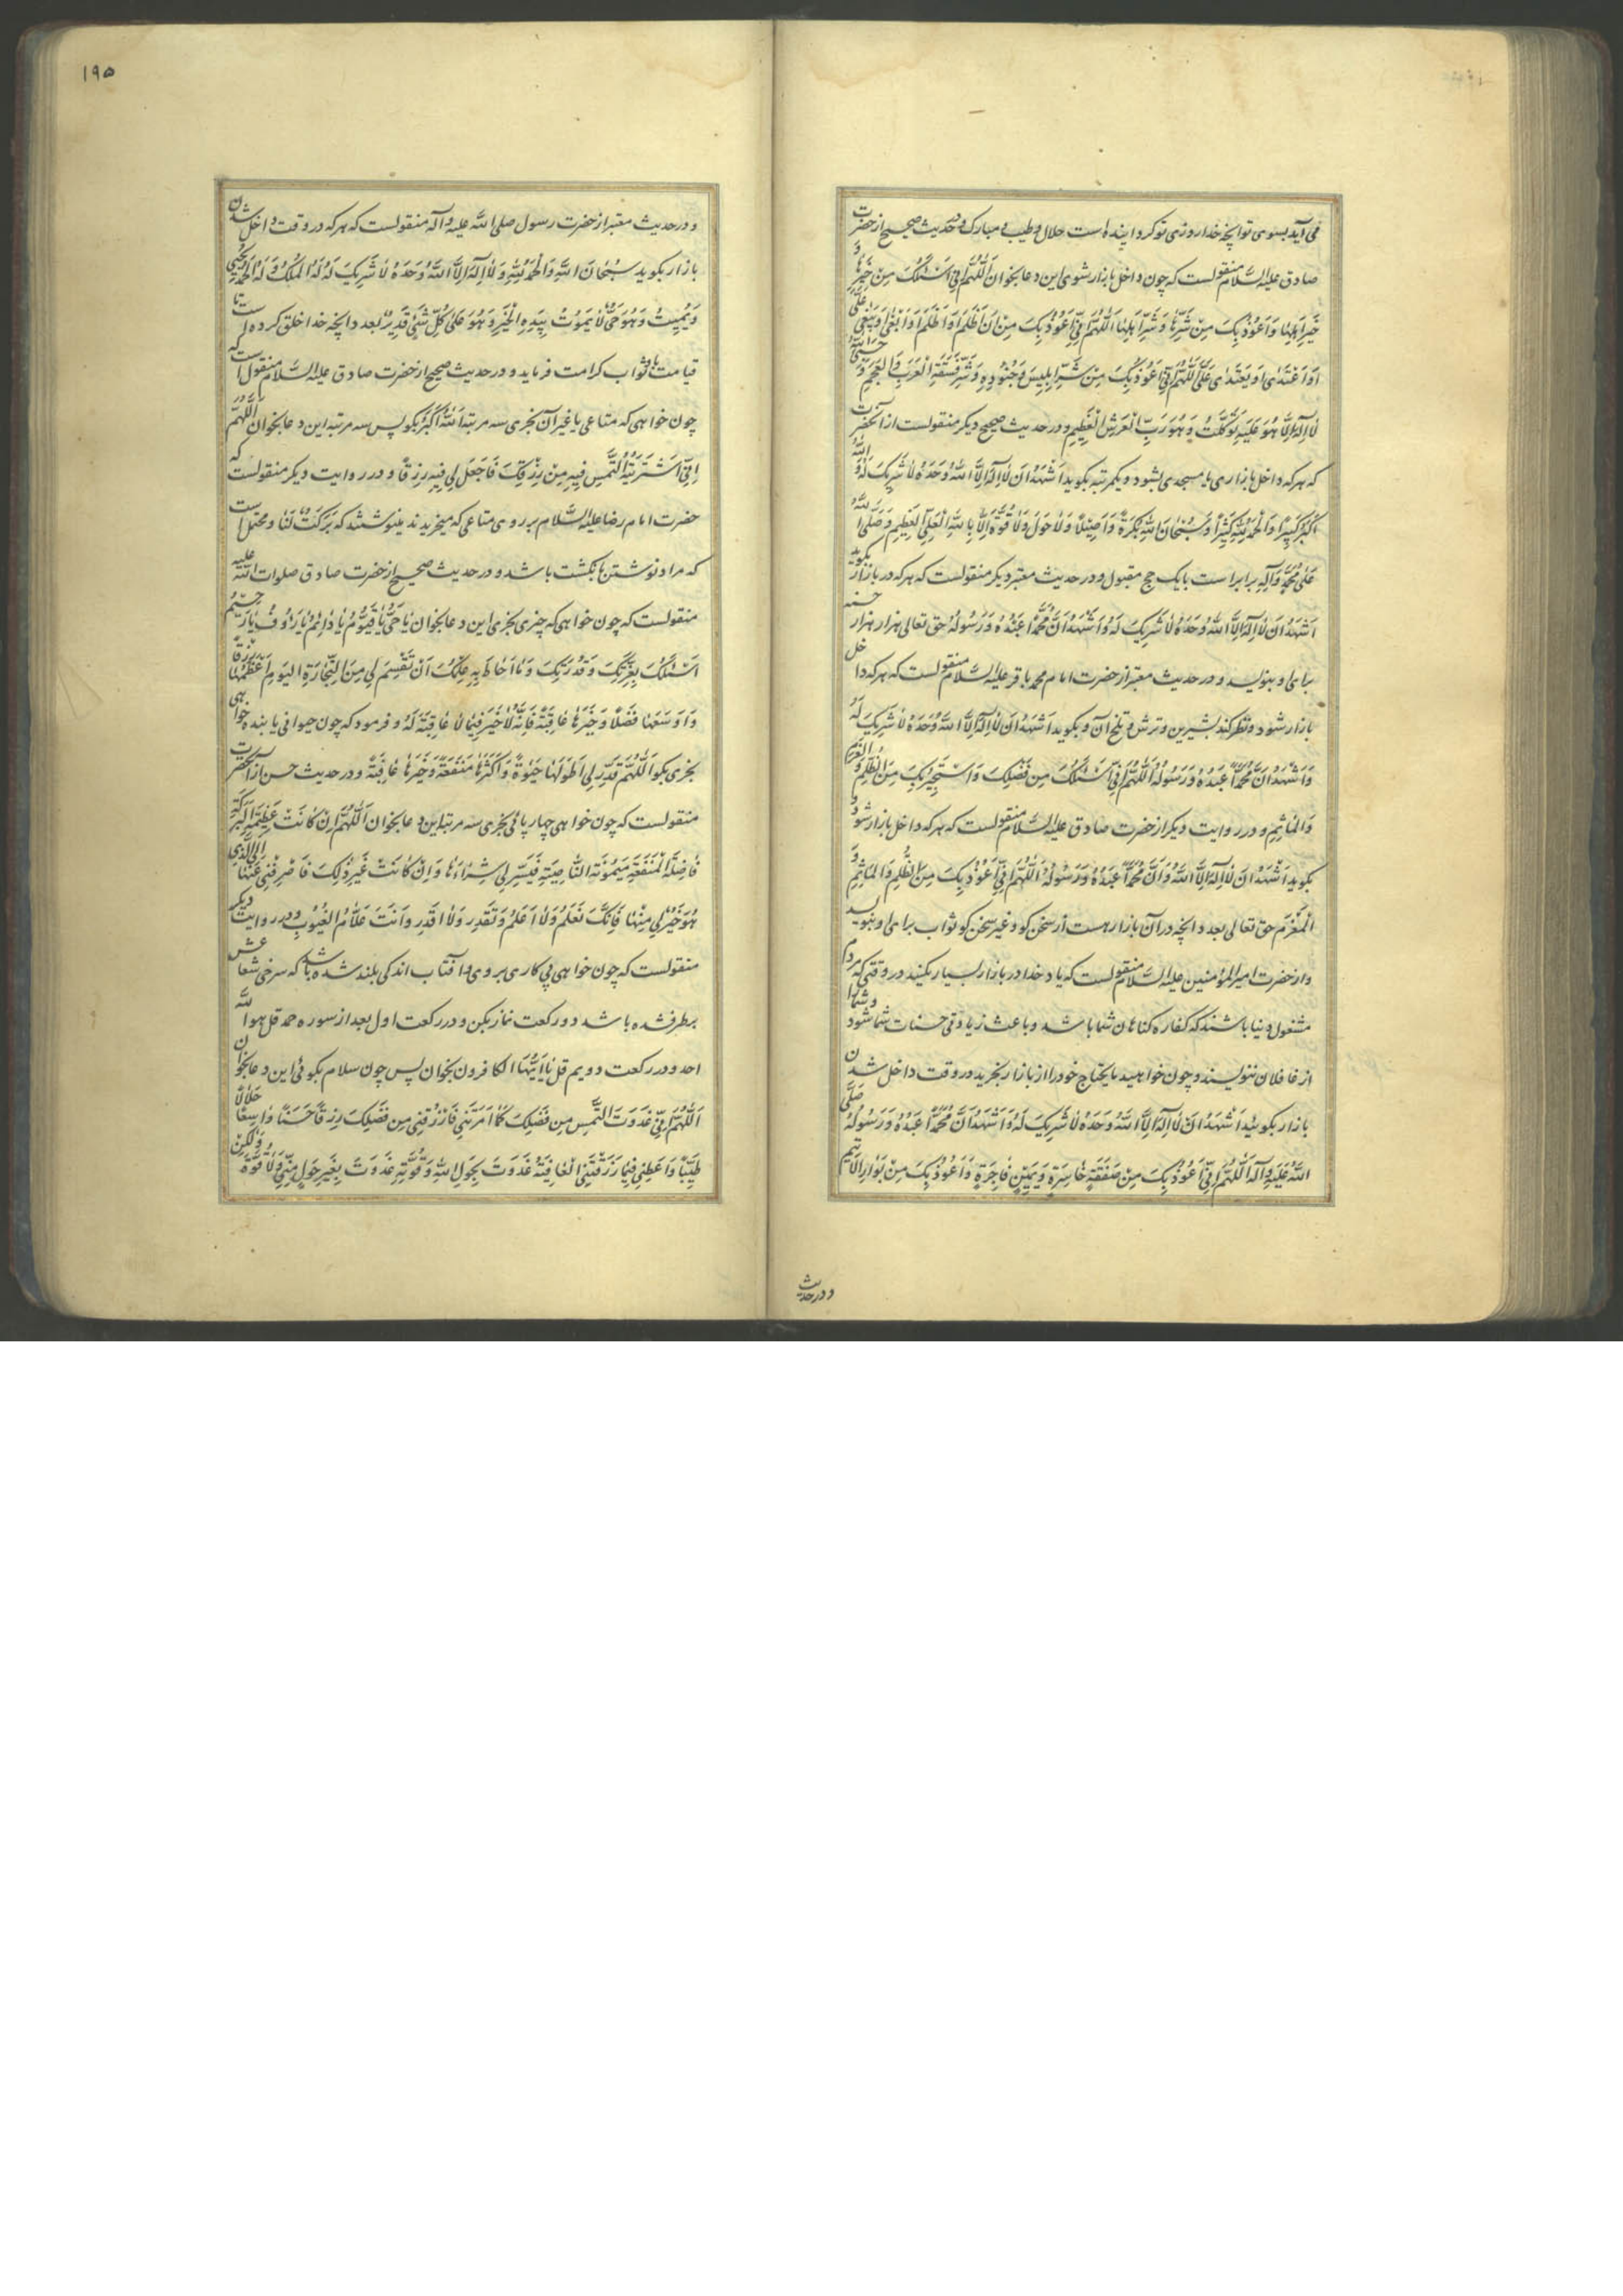 می آید بسوی تو آنچه خدا روزی تو گردانیده است حلال و طیب و مبارک و در حدیث صحیح از حضرت
صادق علیه السّلام منقولست که چون داخل بازار شوی این دعا بخوان اَللّٰهُمَّ اِنّی اَسْئَلُکَ مِنْ خَیْرِهٰا وَ
خَیْرِ اَهْلِهٰا وَ اَعُوْذُ بِکَ مِنْ شَرِّهٰا وَ شَرِّ اَهْلِهٰا اَللّٰهُمَّ اِنّی اَعُوْذُ بِکَ مِنْ اَنْ اَظْلِمَ اَوْ اُظْلَمَ اَوْ اَبْغِیَ اَوْ یُبْغٰی عَلَیَّ
اَوْ اَعْتَدٰی اَوْ یُعْتَدٰی عَلَیَّ اَللّٰهُمَّ اِنّی اَعُوْذُ بِکَ مِنْ شَرِّ اِبْلِیْسَ وَ جُنُوْدِهِ وَ شَرِّ فَسَقَةِ الْعَرَبِ وَ الْعَجَمِ وَ حَسْبِیَ اللّٰهُ
لٰا اِلٰهَ اِلَّا هُوَ عَلَیْهِ تَوَکَّلْتُ وَ هُوَ رَبُّ الْعَرْشِ الْعَظِیْمِ و در حدیث صحیح دیگر منقولست از آنحضرت
که هر که داخل بازاری یا مسجدی بشود و یکمرتبه بگوید اَشْهَدُ اَنْ لٰا اِلٰهَ اِلَّا اللّٰهُ وَحْدَهُ لٰا شَرِیْکَ لَهُ وَ اللّٰهُ
اَکْبَرُ کَبِیْرًا وَ الْحَمْدُ لِلّٰهِ کَثِیْرًا وَ سُبْحٰانَ اللّٰهِ بُکْرَةً وَ اَصِیْلًا وَ لٰا حَوْلَ وَ لٰا قُوَّةَ اِلَّا بِاللّٰهِ الْعَلِیِّ الْعَظِیْمِ وَ صَلَّی اللّٰهُ
عَلٰی مُحَمَّدٍ وَ آلِهِ برابر است با یک حج مقبول و در حدیث معتبر دیگر منقولست که هر که در بازار بگوید
اَشْهَدُ اَنْ لٰا اِلٰهَ اِلَّا اللّٰهُ وَحْدَهُ لٰا شَرِیْکَ لَهُ وَ اَشْهَدُ اَنَّ مُحَمَّدًا عَبْدُهُ وَ رَسُوْلُهُ حق تعالی هزار هزار حسنه
برای او بنویسد و در حدیث معتبر از حضرت امام محمد باقر علیه السّلام منقولست که هر که داخل
بازار شود و نظر کند بشیرین و ترش و تلخ آن و بگوید اَشْهَدُ اَنْ لٰا اِلٰهَ اِلَّا اللّٰهُ وَحْدَهُ لٰا شَرِیْکَ لَهُ
وَ اَشْهَدُ اَنَّ مُحَمَّدًا عَبْدُهُ وَ رَسُوْلُهُ اَللّٰهُمَّ اِنّی اَسْئَلُکَ مِنْ فَضْلِکَ وَ اَسْتَجِیْرُ بِکَ مِنَ الظُّلْمِ وَ الْغُرْمِ
وَ الْمَأْثَمِ و در روایت دیگر از حضرت صادق علیه السّلام منقولست که هر که داخل بازار شود و
بگوید اَشْهَدُ اَنْ لٰا اِلٰهَ اِلَّا اللّٰهُ وَ اَنَّ مُحَمَّدًا عَبْدُهُ وَ رَسُوْلُهُ اَللّٰهُمَّ اِنّی اَعُوْذُ بِکَ مِنَ الظُّلْمِ وَ الْمَأْثَمِ وَ
الْمَغْرَمِ حق تعالی بعدد آنچه در آن بازار هست از سخن گو و غیر سخن گو ثواب برای او بنویسد
و از حضرت امیر المؤمنین علیه السّلام منقولست که یاد خدا در بازار بسیار بکنید در وقتی که مردم
مشغول دنیا باشند که کفاره گناهان شما باشد و باعث زیادتی حسنات شما شود و شما را
از غافلان ننویسند و چون خواهید مایحتاج خود را از بازار بخرید در وقت داخل شدن
بازار بگوئید اَشْهَدُ اَنْ لٰا اِلٰهَ اِلَّا اللّٰهُ وَحْدَهُ لٰا شَرِیْکَ لَهُ وَ اَشْهَدُ اَنَّ مُحَمَّدًا عَبْدُهُ وَ رَسُوْلُهُ صَلَّی
اللّٰهُ عَلَیْهِ وَ آلِهِ اَللّٰهُمَّ اِنّی اَعُوْذُ بِکَ مِنْ صَفْقَةٍ خٰاسِرَةٍ وَ یَمِیْنٍ فٰاجِرَةٍ وَ اَعُوْذُ بِکَ مِنْ بَوٰارِ الْاَیِّمِ
و در حدیث
۱۹۵
و در حدیث معتبر از حضرت رسول صلی اللّٰه علیه و آله منقولست که هر که در وقت داخل شدن
بازار بگوید سُبْحٰانَ اللّٰهِ وَ الْحَمْدُ لِلّٰهِ وَ لٰا اِلٰهَ اِلَّا اللّٰهُ وَحْدَهُ لٰا شَرِیْکَ لَهُ لَهُ الْمُلْکُ وَ لَهُ الْحَمْدُ یُحْیِی
وَ یُمِیْتُ وَ هُوَ حَیٌّ لٰا یَمُوْتُ بِیَدِهِ الْخَیْرُ وَ هُوَ عَلٰی کُلِّ شَیْئٍ قَدِیْرٌ بعدد آنچه خدا خلق کرده است تا
قیامت باو ثواب کرامت فرماید و در حدیث صحیح از حضرت صادق علیه السّلام منقول است که
چون خواهی که متاعی یا غیر آن بخری سه مرتبه اَللّٰهُ اَکْبَرُ بگو پس سه مرتبه این دعا بخوان اَللّٰهُمَّ
اِنّی اشْتَرَیْتُهُ اَلْتَمِسُ فِیْهِ مِنْ رِزْقِکَ فَاجْعَلْ لِی فِیْهِ رِزْقًا و در روایت دیگر منقولست که
حضرت امام رضا علیه السّلام بر روی متاعی که میخریدند مینوشتند که بَرَکَةٌ لَنٰا و محتمل است
که مراد نوشتن بانگشت باشد و در حدیث صحیح از حضرت صادق صلوات اللّٰه علیه
منقولست که چون خواهی که چیزی بخری این دعا بخوان یٰا حَیُّ یٰا قَیُّوْمُ یٰا دٰائِمُ یٰا رَؤُفُ یٰا رَحِیْمُ
اَسْئَلُکَ بِعِزَّتِکَ وَ قُدْرَتِکَ وَ مٰا اَحٰاطَ بِهِ عِلْمُکَ اَنْ تَقْسِمَ لِی مِنَ التِّجٰارَةِ الْیَوْمَ اَعْظَمَهٰا رِزْقًا
وَ اَوْسَعَهٰا فَضْلًا وَ خَیْرَهٰا عٰاقِبَةً فَاِنَّهُ لٰا خَیْرَ فِیْمٰا لٰا عٰاقِبَةَ لَهُ و فرمود که چون حیوانی یا بنده خواهی
بخری بگو اَللّٰهُمَّ قَدِّرْ لِی اَطْوَلَهٰا حَیٰوةً وَ اَکْثَرَهٰا مَنْفَعَةً وَ خَیْرَهٰا عٰاقِبَةً و در حدیث حسن از آنحضرت
منقولست که چون خواهی چهارپائی بخری سه مرتبه این دعا بخوان اَللّٰهُمَّ اِنْ کٰانَتْ عَظِیْمَةَ الْبَرَکَةِ
فٰاضِلَةَ الْمَنْفَعَةِ مَیْمُوْنَةَ النّٰاصِیَةِ فَیَسِّرْ لِی شِرٰاءَهٰا وَ اِنْ کٰانَتْ غَیْرَ ذٰلِکَ فَاصْرِفْنِی عَنْهٰا اِلَی الَّذِی
هُوَ خَیْرٌ لِی مِنْهٰا فَاِنَّکَ تَعْلَمُ وَ لٰا اَعْلَمُ وَ تَقْدِرُ وَ لٰا اَقْدِرُ وَ اَنْتَ عَلّٰامُ الْغُیُوْبِ و در روایت دیگر
منقولست که چون خواهی پی کاری بروی آفتاب اندکی بلند شده باشد که سرخی شعاعش
برطرف شده باشد دو رکعت نماز بکن و در رکعت اول بعد از سوره حمد قل هو اللّٰه
احد و در رکعت دویم قل یٰا اَیُّهَا الکافرون بخوان پس چون سلام بگوئی این دعا بخوان
اَللّٰهُمَّ اِنّی غَدَوْتُ اَلْتَمِسُ مِنْ فَضْلِکَ کَمٰا اَمَرْتَنِی فَارْزُقْنِی مِنْ فَضْلِکَ رِزْقًا حَسَنًا وٰاسِعًا حَلٰالًا
طَیِّبًا وَ اَعْطِنِی فِیْمٰا رَزَقْتَنِی الْعٰافِیَةَ غَدَوْتُ بِحَوْلِ اللّٰهِ وَ قُوَّتِهِ غَدَوْتُ بِغَیْرِ حَوْلٍ مِنِّی وَ لٰا قُوَّةٍ وَ لٰکِنْ